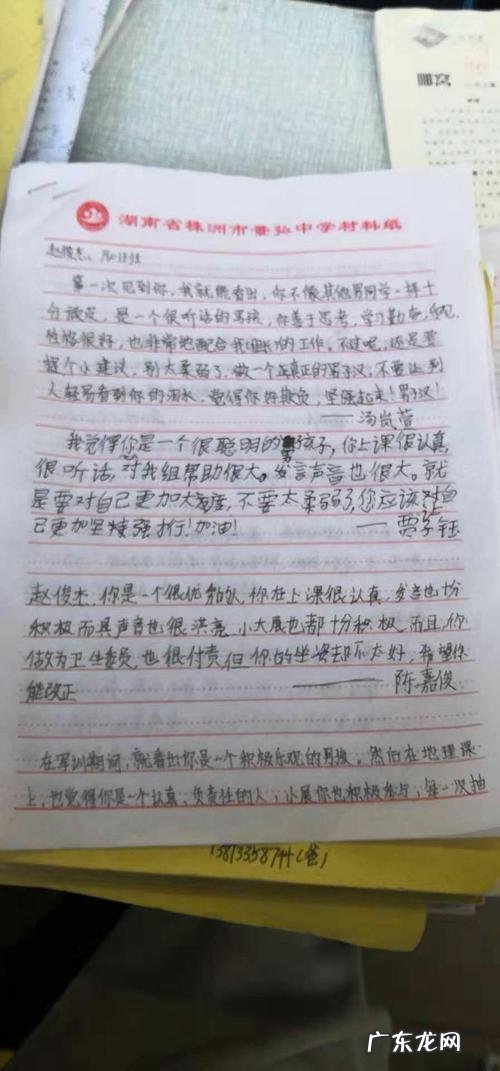 湖南省株洲市景弘中学材料纸
赵俊杰
第一次见到你,我就能看出,你不像其他男同学一样十
分调皮,是一个很听话的男孩,你善于思考,学习勤奋,表现
性格很好,也非常地配合我组的工作。不过呢,还是要
提个小建议,别太柔弱了,做一个真正的男子汉,不要让别
人轻易看到你的泪水,觉得你好欺负,坚强起来!男子汉!
——汤岚萱
我觉得你是一个很聪明的男孩子,你上课很认真,
很听话,对我组帮助很大。发言声音也很大。就
是要对自己更加大度,不要太柔弱了,您应该对自
己更加坚强才行!加油!——贾子钰
赵俊杰,你是一个很优秀的人,你在上课很认真,发言也十分
积极而且声音也很洪亮,小大展也都十分积极,而且,你
做为卫生委员也很付责,但你的坐姿却不太好,希望你
能改正 ——陈嘉俊
在军训期间,就看出你是一个积极乐观的男孩。然后在地理课
上,也觉得你是一个认真、负责任的人;小展你也积极参与;每一次抽
(爸)
广东龙网